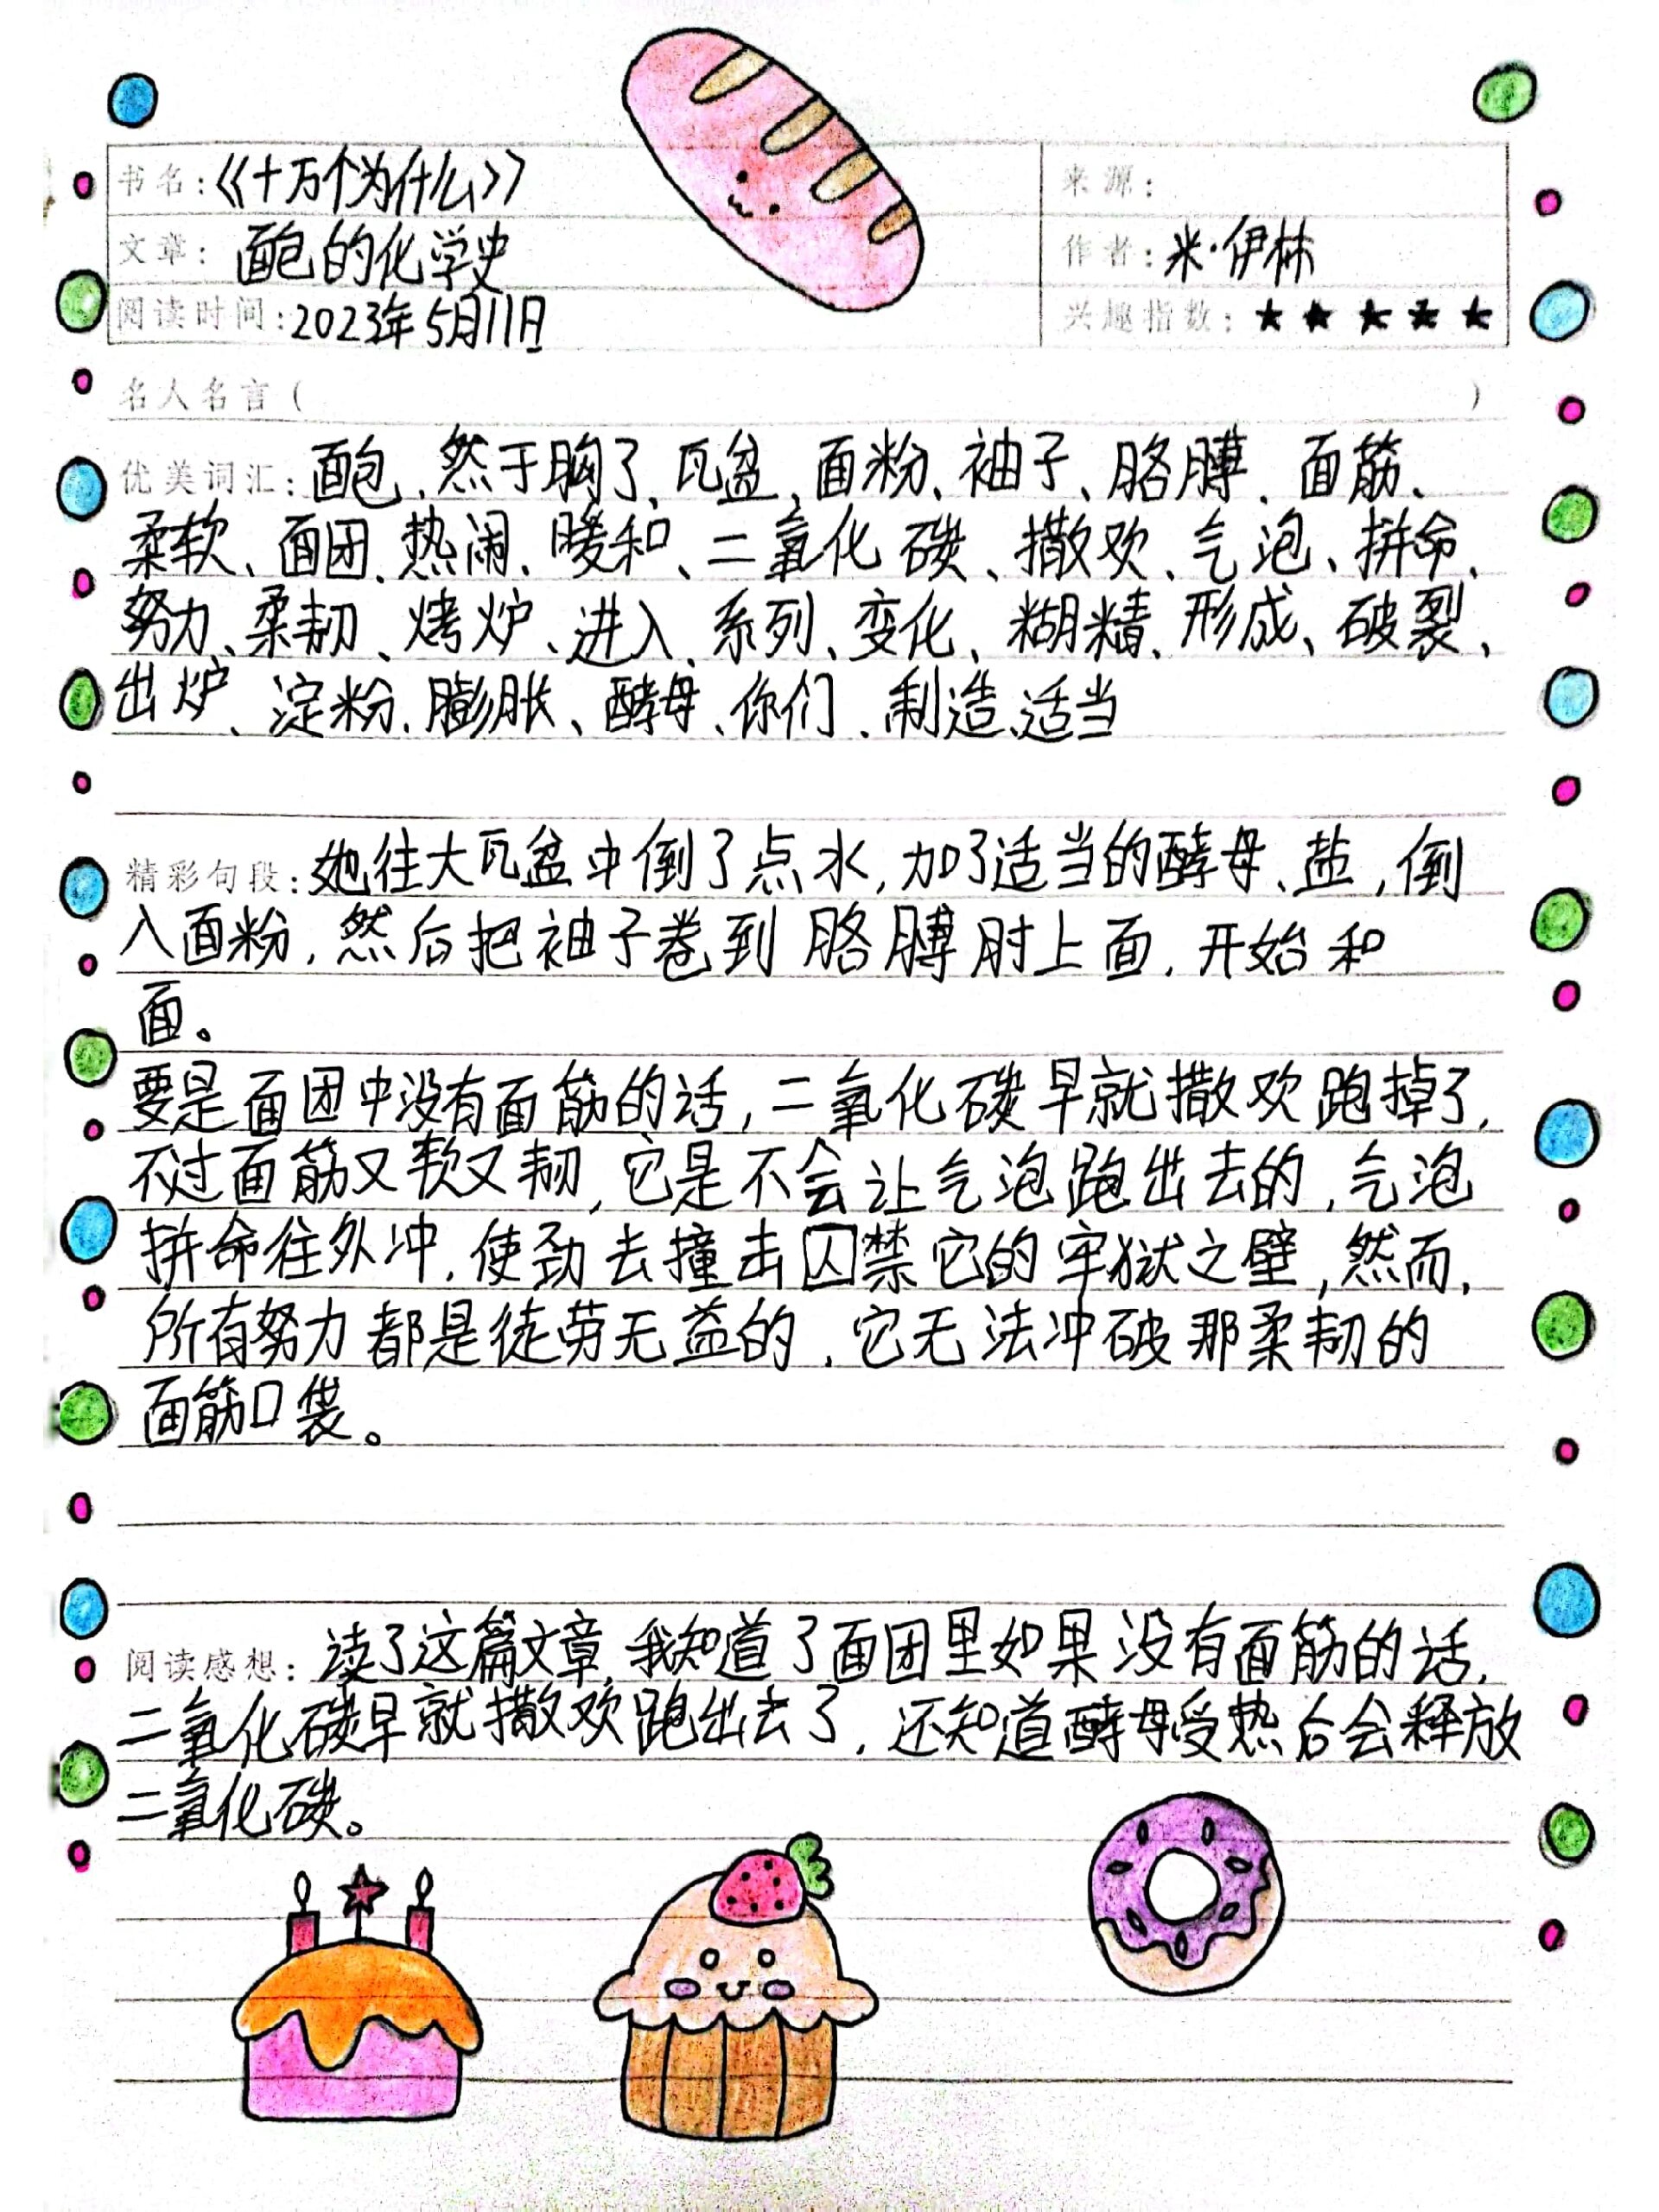 书名:《十万个为什么》
来源:
文章: 面包的化学史
作者:米·伊林
阅读时间:2023年5月11日
兴趣指数:★★★★★
名人名言( )
优美词汇:面包、然于胸了、瓦盆、面粉、袖子、胳膊、面筋、
柔软、面团、热闹、暖和、二氧化碳、撒欢、气泡、拼命、
努力、柔韧、烤炉、进入、系列、变化、糊精、形成、破裂、
出炉、淀粉、膨胀、酵母、你们、制造、适当
精彩句段:她往大瓦盆中倒了点水,加了适当的酵母、盐,倒
入面粉,然后把袖子卷到胳膊肘上面,开始和
面。
要是面团中没有面筋的话,二氧化碳早就撒欢跑掉了,
不过面筋又软又韧,它是不会让气泡跑出去的,气泡
拼命往外冲,使劲去撞击囚禁它的牢狱之壁,然而,
所有努力都是徒劳无益的,它无法冲破那柔韧的
面筋口袋。
阅读感想:读了这篇文章,我知道了面团里如果没有面筋的话,
二氧化碳早就撒欢跑出去了,还知道酵母受热后会释放
二氧化碳。